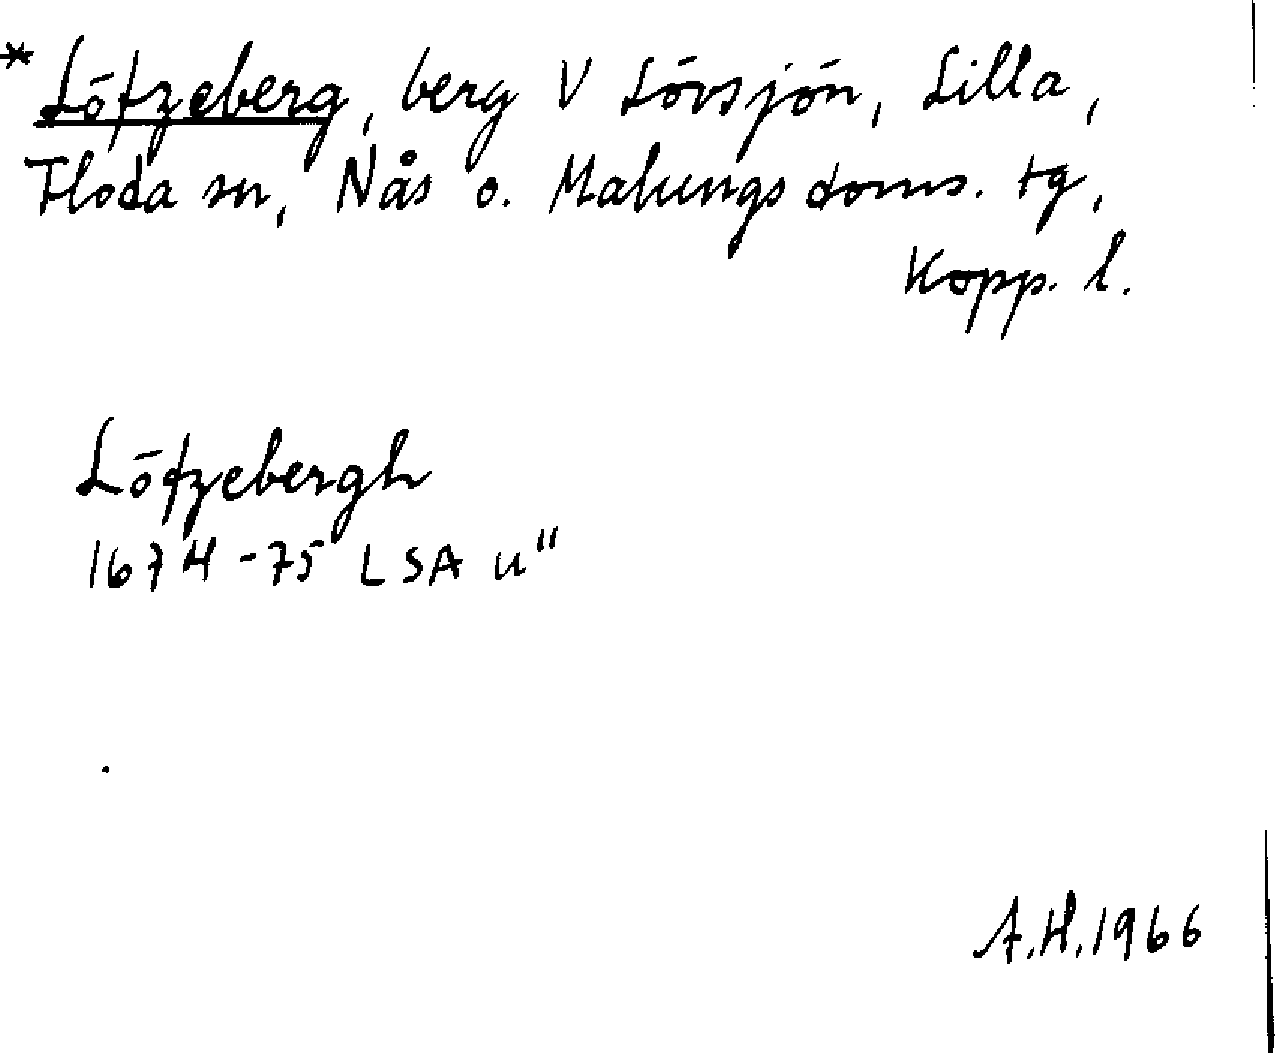 * Löfzeberg, berg V Lövsjön, Lilla,
Floda sn, Nås o. Malungs doms. tg,
Kopp. l.
Löfzebergh
1674-75 LSA u"
A.H. 1966